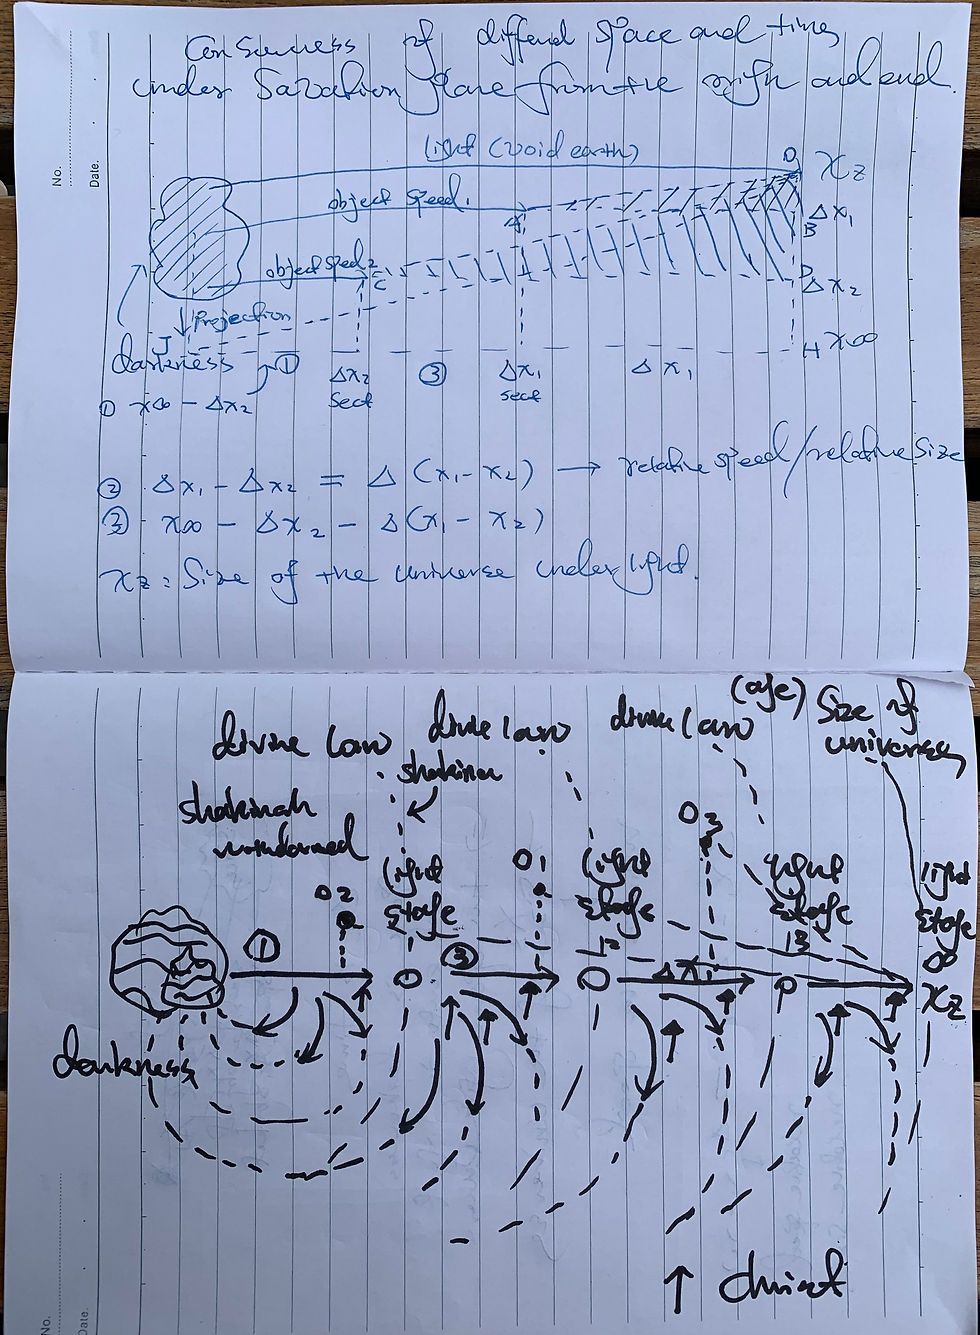 Consciousness of differnd space and time
under Salvation plane from the orign and end.
No.
Date.
light (void earth)
O
Xz
object speed 1
A
Δx1
B
object speed 2
C
D
Δx2
↓ Projection
J
H
x∞
darkness
①
Δx2
sect
③
Δx1
sect
Δx1
① x∞ - Δx2
② Δx1 - Δx2 = Δ(x1 - x2) → relative speed/relative size
③ x∞ - Δx2 - Δ(x1 - x2)
xz: Size of the universe under light.
(age)
Size of
universe
divine law
divine law
divine law
shakinah
shakinah
O3
O2
O1
light
stage
light
stage
12
light
stage
13
light
stage
∞
①
③
Δx1
xz
darkness
↑ christ
No.
Date.